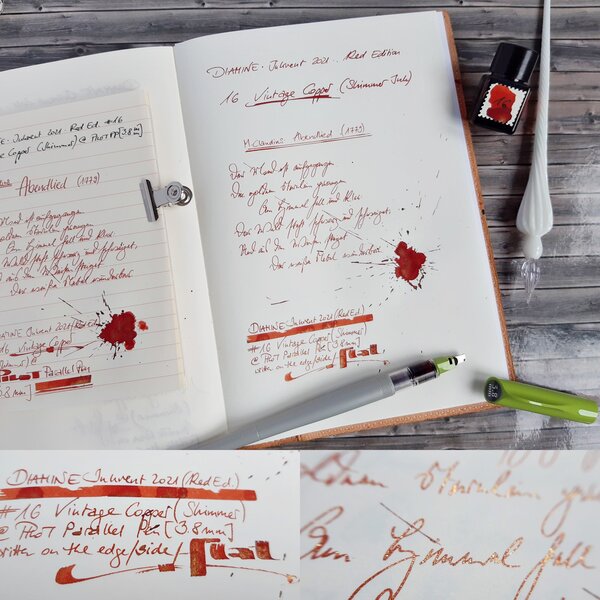 E. Inkvent 2021. Red Ed. #16
Copper (Shimmer) @ Pilot PP [3.8 m]
Abendlied (1779)
Mond ist aufgegangen
goldnen Sternlein prangen
Am Himmel hell und klar.
Wald steht schwarz und schweiget,
Der weiße Nebel wunderbar.
DIAMINE Inkvent 2021 (Red Ed.)
16 Vintage Copper
Pilot Parallel Pen
3.8 mm]
DIAMINE. Inkvent 2021.. Red Edition
16 Vintage Copper (Shimmer Ink)
M. Claudius: Abendlied (1779)
Der Mond ist aufgegangen
Die goldnen Sternlein prangen
Am Himmel hell und klar.
Der Wald steht schwarz und schweiget,
Und aus den Wiesen steiget
Der weiße Nebel wunderbar
DIAMINE Inkvent 2021 (Red Ed.)
#16 Vintage Copper (Shimmer)
@ Pilot Parallel Pen [3.8mm]
written on the edge/side/flat
3.8
DIAMINE Inkvent 2021 (Red Ed.)
#16 Vintage Copper (Shimmer)
@ Pilot Parallel Pen [3.8mm]
written on the edge/side/flat
Sternlein
Am Himmel hell